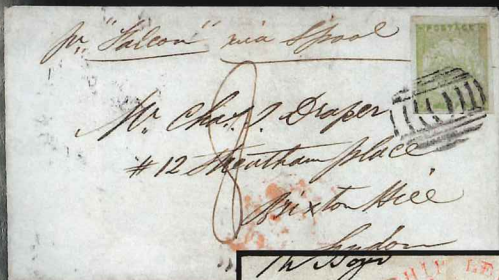 pr "Falcon" via L'pool
POSTAGE
8
Mr. Chas. J. Draper
#12 Streatham place
Brixton Hill
London
SHIP LE